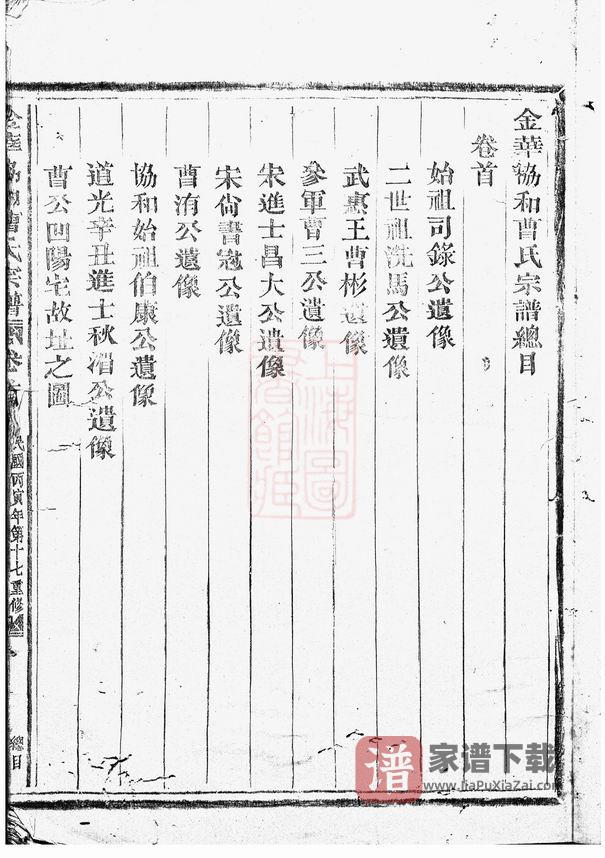 金華協和曹氏宗譜總目
卷首
始祖司錄公遺像
二世祖洗馬公遺像
武惠王曹彬遺像
參軍曹三公遺像
宋進士昌大公遺像
宋尙書冦公遺像
曹洧公遺像
協和始祖伯康公遺像
道光辛丑進士秋湄公遺像
曹公凹陽宅故址之圖
金華協和曹氏宗譜 卷首 民國丙寅年第十七重修 總目
上海圖書館
譜 家谱下载
www.JiaPuXiaZai.com